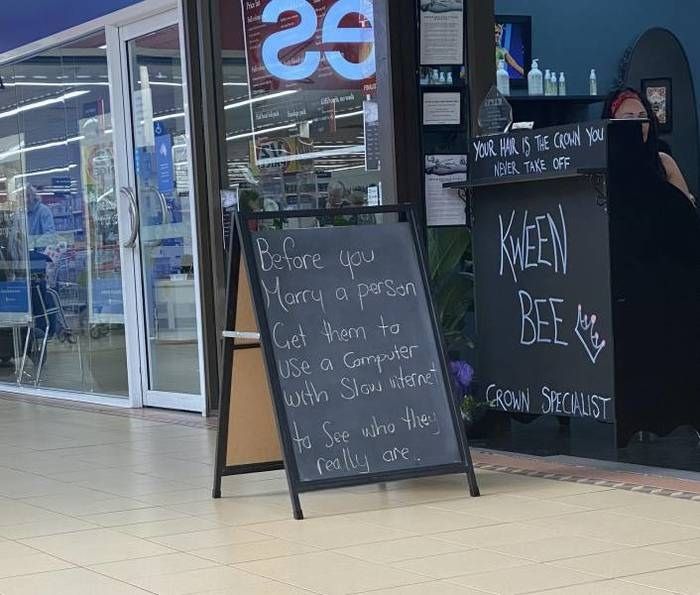 Before you
Marry a person
Get them to
use a Computer
with Slow internet
to See who they
really are.
YOUR HAIR IS THE CROWN YOU
NEVER TAKE OFF
KWEEN
BEE
CROWN SPECIALIST